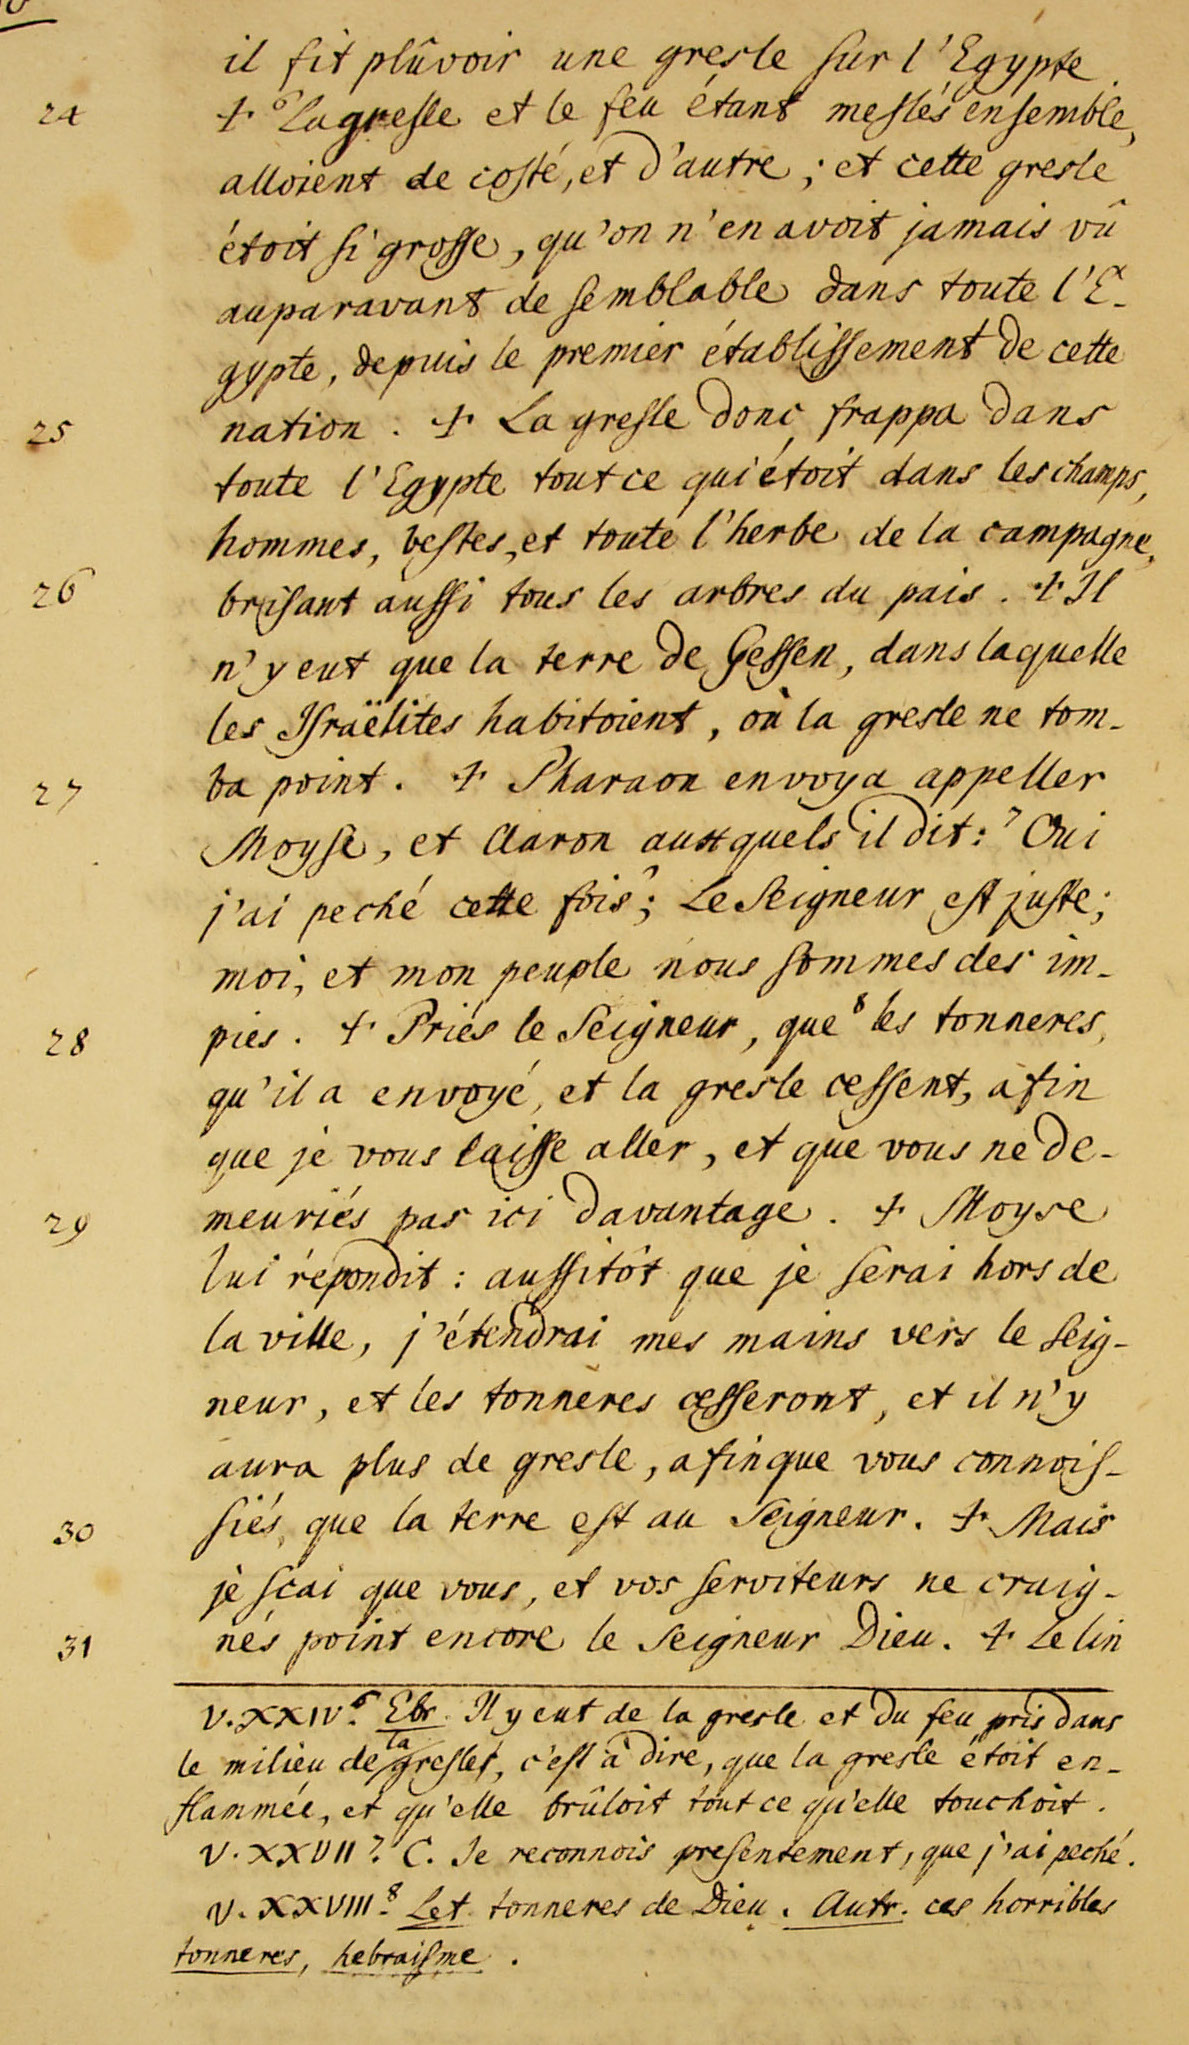 il fit plûvoir une gresle sur l'Egypte
24 + 6 La gresle et le feu étant meslés ensemble,
alloient de costé, et d'autre ; et cette gresle
étoit si grosse, qu'on n'en avoit jamais vû
auparavant de semblable dans toute l'E-
gypte, depuis le premier établissement de cette
25 nation . + La gresle donc frappa dans
toute l'Egypte tout ce qui étoit dans les champs,
hommes, bestes, et toute l'herbe de la campagne,
26 brisant aussi tous les arbres du pais . + Il
n'y eut que la terre de Gessen, dans laquelle
les Israëlites habitoient, où la gresle ne tom-
27 ba point . + Pharaon envoya appeller
Moyse, et Aaron auxquels il dit : 7 Oui
j'ai peché cette fois ; Le Seigneur est juste ;
moi, et mon peuple nous sommes des im-
28 pies . + Priés le Seigneur, que 8 les tonneres,
qu'il a envoyé, et la gresle cessent, afin
que je vous laisse aller, et que vous ne de-
29 meuriés pas ici davantage . + Moyse
lui répondit : aussitôt que je serai hors de
la ville, j'étendrai mes mains vers le Seig-
neur, et les tonneres cesseront, et il n'y
aura plus de gresle, afinque vous connois-
30 siés, que la terre est au Seigneur . + Mais
je scai que vous, et vos serviteurs ne craig-
31 nés point encore le Seigneur Dieu . + Le lin
V. XXIV. 6 Ebr. Il y eut de la gresle et du feu pris dans
le milieu de la gresles, c'est à dire, que la gresle étoit en-
flammée, et qu'elle brûloit tout ce qu'elle touchoit .
V. XXVII. 7 C. Je reconnois presentement, que j'ai peché.
V. XXVIII. 8 Let. tonneres de Dieu . Autr. ces horribles
tonneres, hebraisme .